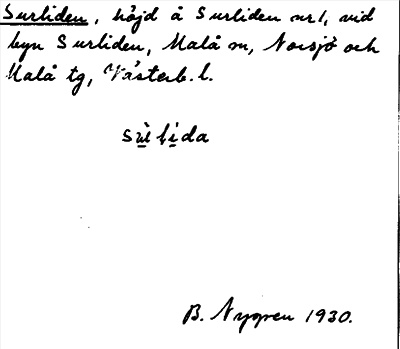 Surliden, höjd å Surliden nr 1, vid
byn Surliden, Malå sn, Norsjö och
Malå tg, Västerb. l.
sùlida
B. Nygren 1930.